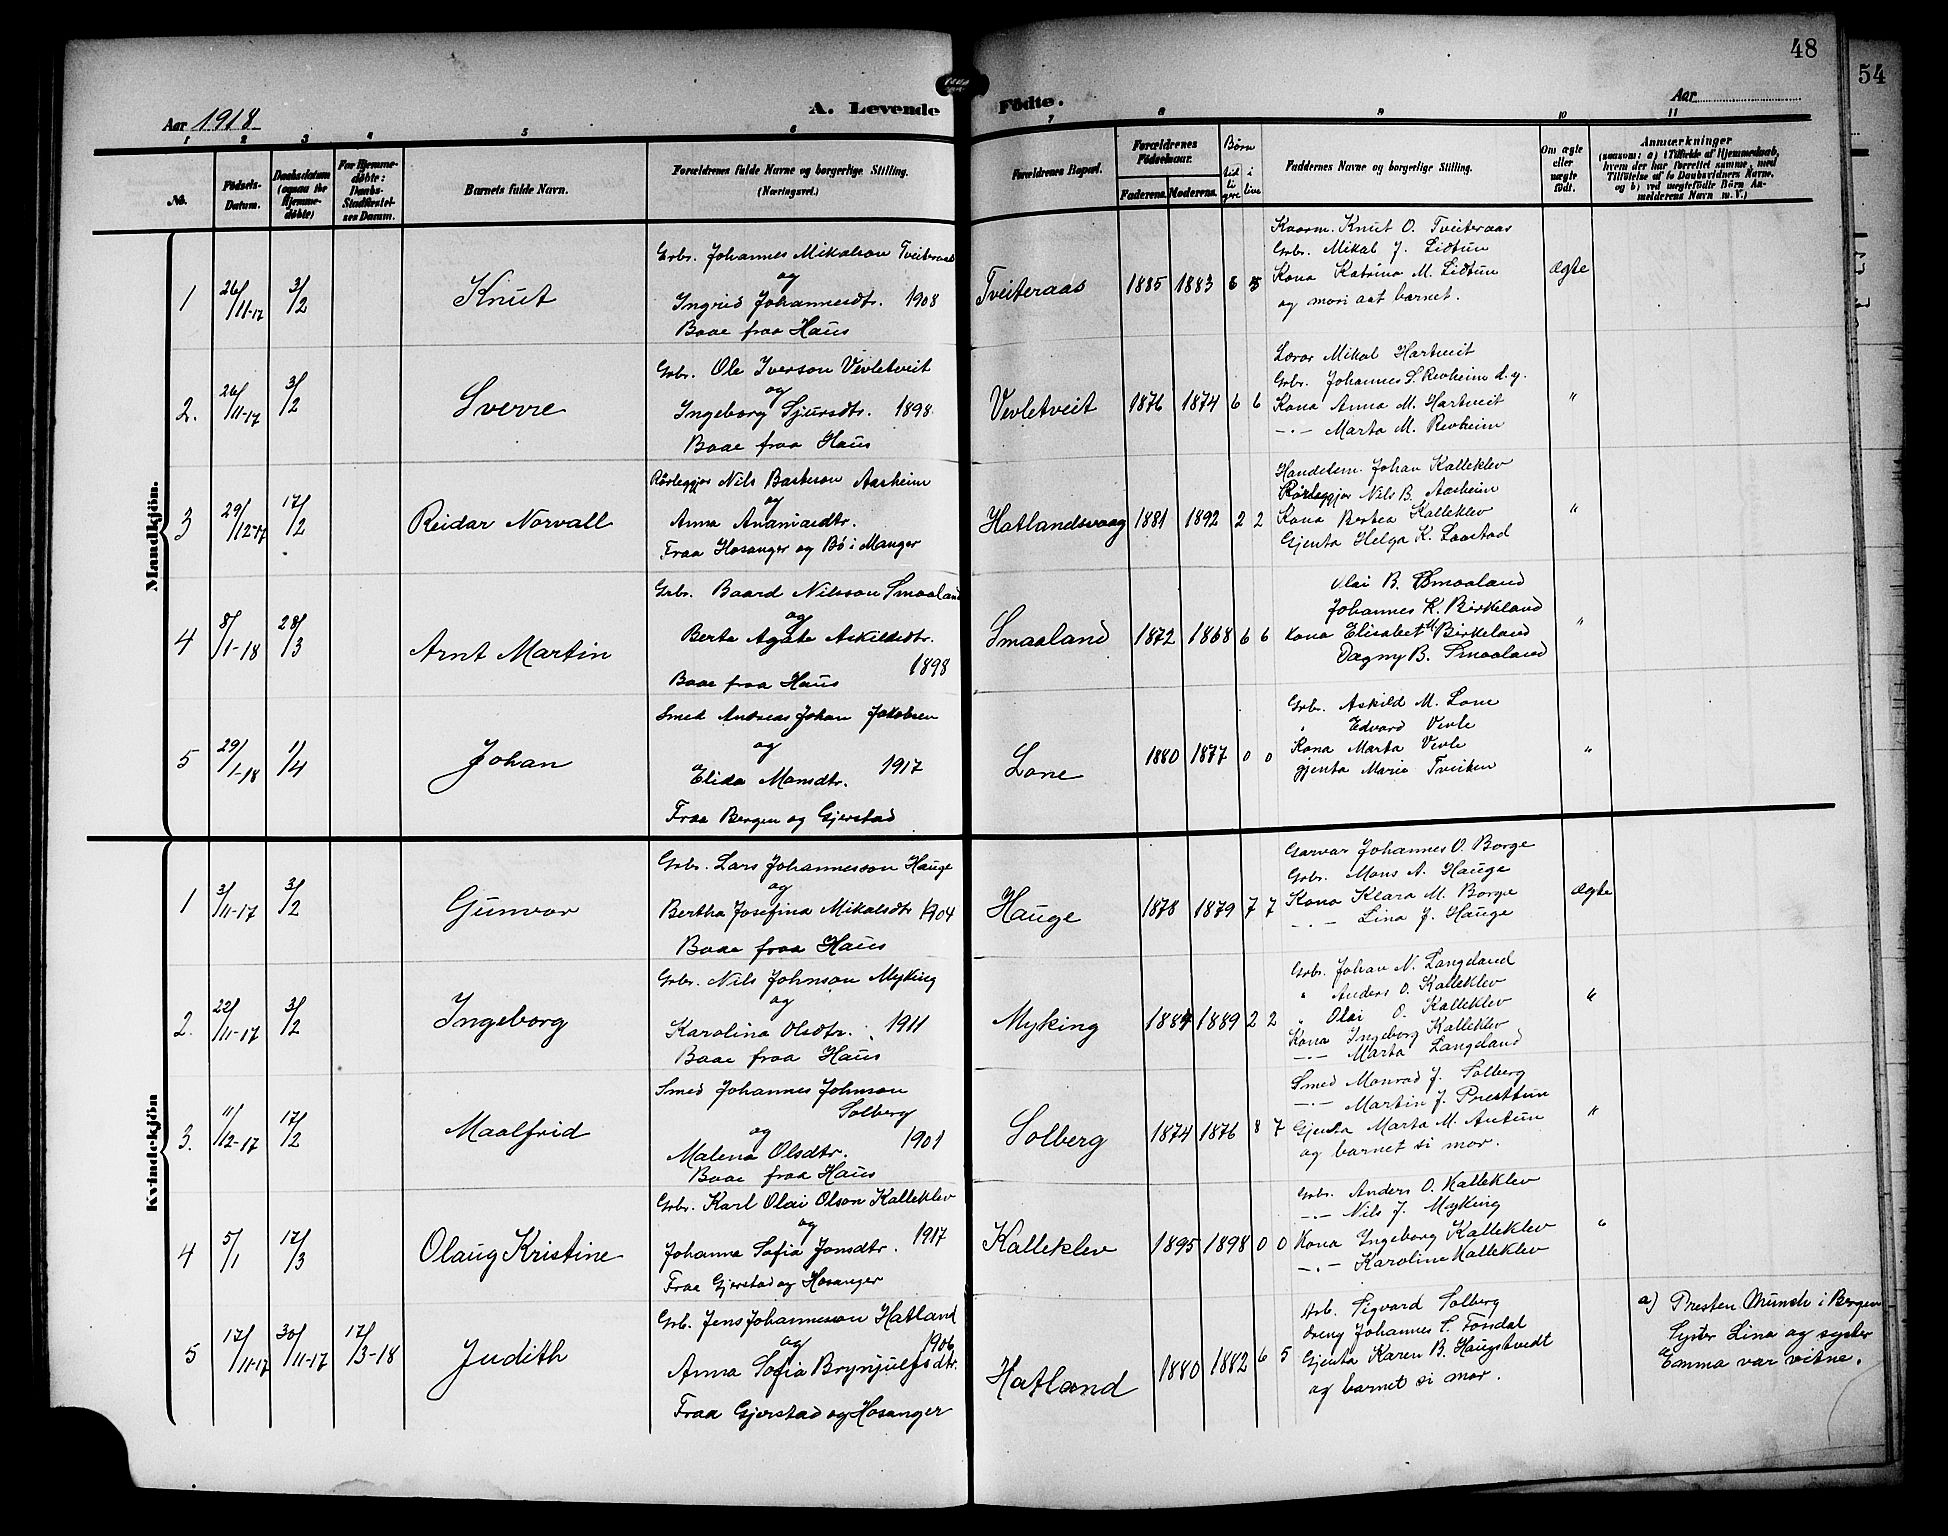 48
54
A. Levende Fødte.
Aar 1918
Aar
1 2 3 4 5 6 7 8 9 10 11
No.
Fødsels-Datum.
Daabsdatum (ogsaa for Hjemmedøbte)
For Hjemmedøbte: Daabs-Stadfæstelses Datum.
Barnets fulde Navn.
Forældrenes fulde Navne og borgerlige Stilling. (Næringsvei.)
Forældrenes Bopæl.
Forældrenes Fødselsaar.
Faderens. Moderens.
Børn
tidligere i live
Faddernes Navne og borgerlige Stilling.
Om ægte eller uægte født.
Anmærkninger
(saasom: a) i Tilfælde af Hjemmedaab, hvem der har forrettet samme, med Tilføielse af to Daabsvidners Navne, og b) ved uægtefødte Børn Anmelderens Navn m. V.)
Mandkjön.
1 26/11-17 3/2 Knut
Grbr. Johannes Mikalson Tveiteraas
og
Ingrid Johannesdtr. 1908
Baae fraa Haus
Tveiteraas 1885 1883 6 5
Kaarm. Knut O. Tveiteraas
Grbr. Mikal J. Lidtun
Kona Katrina M. Lidtun
og mori aat barnet.
Ægte
2. 26/11-17 3/2 Sverre
Grbr. Ole Iverson Vevletveit
og
Ingeborg Sjursdtr. 1898
Baae fraa Haus
Vevletveit 1876 1874 6 6
Lærar Mikal Hartveit
Grbr. Johannes S. Revheim d.y.
Kona Anna M. Hartveit
-"- Marta M. Revheim
"
3 29/12-17 17/2 Reidar Norvall
Rörleggjar Nils Basteson Aasheim
og
Anna Ananiasdtr.
Fraa Hosanger og Bö i Manger
Hatlandsvaag 1881 1892 2 2
Handelsm. Johan Kalleklev
Rörleggjar Nils B. Aasheim
Kona Bertea Kalleklev
Gjenta Helga K. Laastad
"
4 8/1-18 28/3 Arnt Martin
Grbr. Baard Nilsson Smaaland
og
Berta Agata Askildsdtr.
1898
Baae fraa Haus
Smaaland 1872 1868 6 6
Olai B. Smaaland
Johannes K. Birkeland
Kona Elisabet M Birkeland
Dagny B. Smaaland
"
5 29/1-18 1/4 Johan
Smed Andreas Johan Jakobsen
og
Elida Monsdtr. 1917
Fraa Bergen og Gjerstad
Lone 1880 1877 0 0
Grbr. Askild M. Lone
" Edvard Vevle
Kona Marta Vevle
gjenta Maria Tveiten
"
Kvindekjön
1 3/11-17 3/2 Gunvor
Grbr. Lars Johannesson Hauge
og
Bertha Josefina Mikalsdtr 1904
Baae fraa Haus
Hauge 1878 1879 7 7
Garvar Johannes O. Borge
Grbr. Mons N. Hauge
Kona Klara M. Borge
-"- Lina J. Hauge
Ægte
2. 22/11-17 3/2 Ingeborg
Grbr. Nils Johnson Myking
og
Karolina Olsdtr. 1911
Baae fraa Haus
Myking 1884 1889 2 2
Grbr. Johan N. Langeland
" Anders O. Kalleklev
" Olai O. Kalleklev
Kona Ingeborg Kalleklev
-"- Marta Langeland
"
3. 11/12-17 17/2 Maalfrid
Smed Johannes Johnson
Solberg
og 1901
Malena Olsdtr.
Baae fraa Haus
Solberg 1874 1876 8 7
Smed Monrad J. Solberg
-"- Martin J. Presttun
Gjenta Marta M. Autun
og barnet si mor.
"
4 5/1 17/3 Olaug Kristine
Grbr. Karl Olai Olson Kalleklev
og
Johanna Sofia Jonsdtr. 1917
Fraa Gjerstad og Hosanger
Kalleklev 1895 1898 0 0
Grbr. Anders O. Kalleklev
-"- Nils J. Myking
Kona Ingeborg Kalleklev
-"- Karoline Kalleklev
"
5 17/11-17 30/11-17 17/3-18 Judith
Grb. Jens Johannesson Hatland
og 1906
Anna Sofia Brynjulfsdtr.
Fraa Gjerstad og Hosanger
Hatland 1880 1882 6 5
Arb. Sigvard Solberg
dreng Johannes S. Fosdal
Gjenta Karen B. Haugstvedt
og barnet si mor.
a) Presten Munch i Bergen
Syster Lina og syster
Emma var vitne.